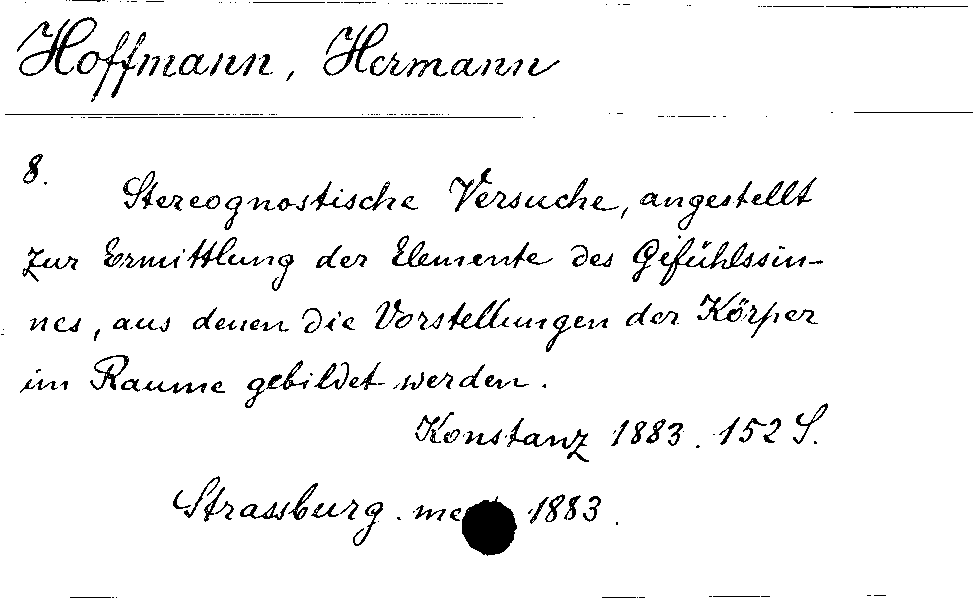 Hoffmann, Hermann
8.
Stereognostische Versuche, angestellt
zur Ermittlung der Elemente des Gefühlssin-
nes, aus denen die Vorstellungen der Körper
im Raume gebildet werden.
Konstanz 1883. 152 S.
Strassburg. 1883.